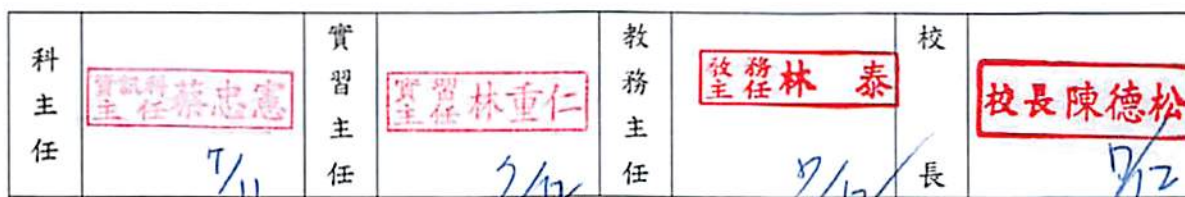 科主任
資訊科主任 蔡忠憲
7/11
實習主任
實習主任 林重仁
7/12
教務主任
教務主任 林泰
7/12
校長
校長陳德松
7/12